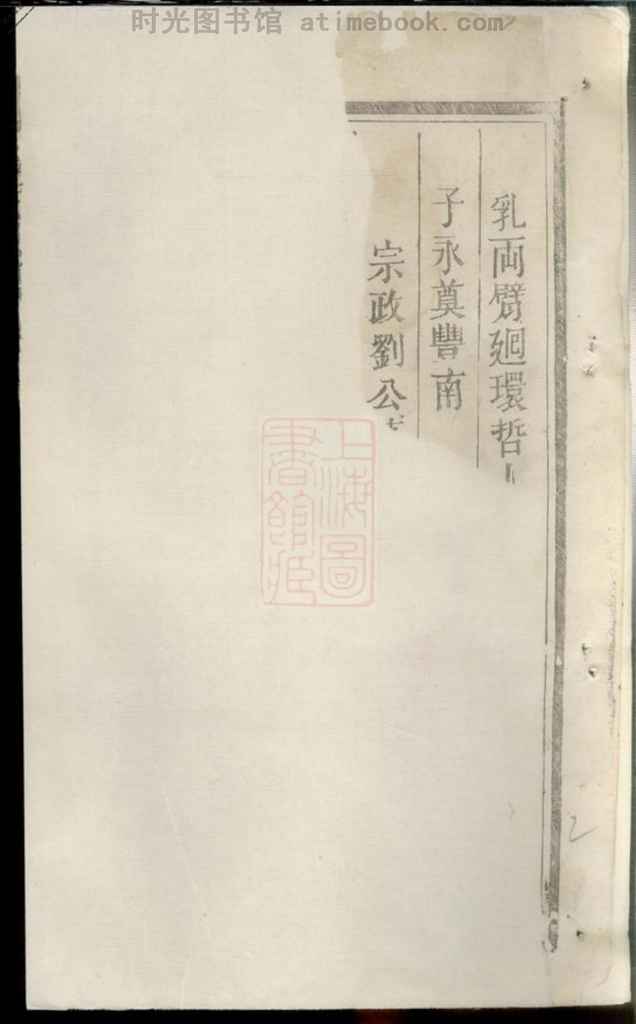 时光图书馆 atimebook.com
乳兩臂廻環哲
子永奠豐南
宗政劉公
上海圖
書館藏